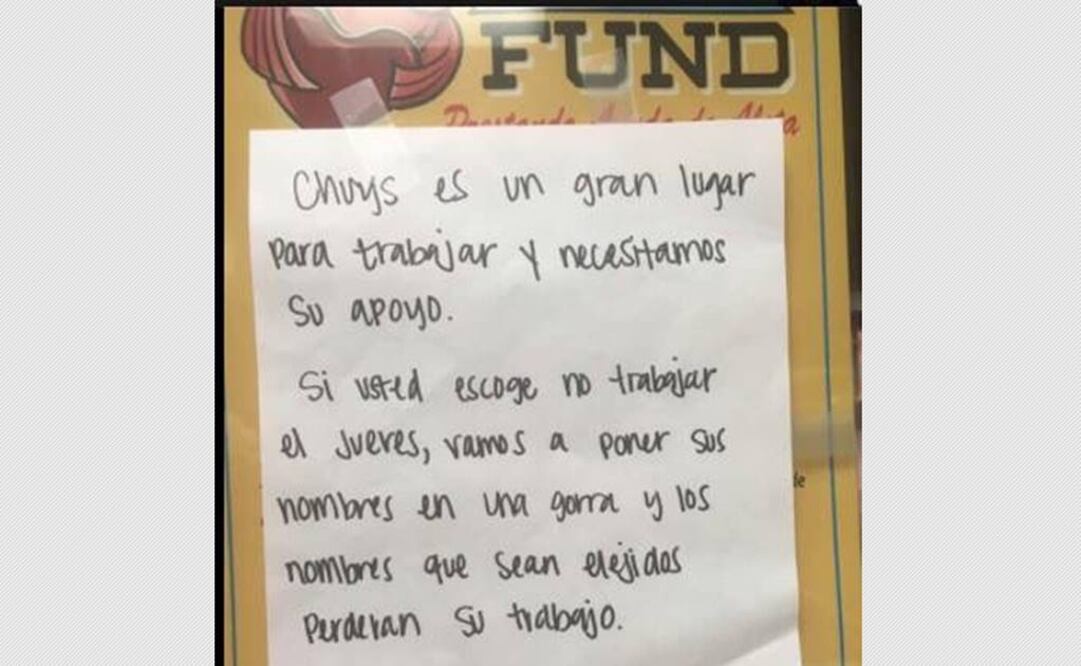 FUND
Chuys es un gran lugar
para trabajar y necesitamos
su apoyo.
Si usted escoge no trabajar
el Jueves, vamos a poner sus
nombres en una gorra y los
nombres que sean elejidos
perderan su trabajo.